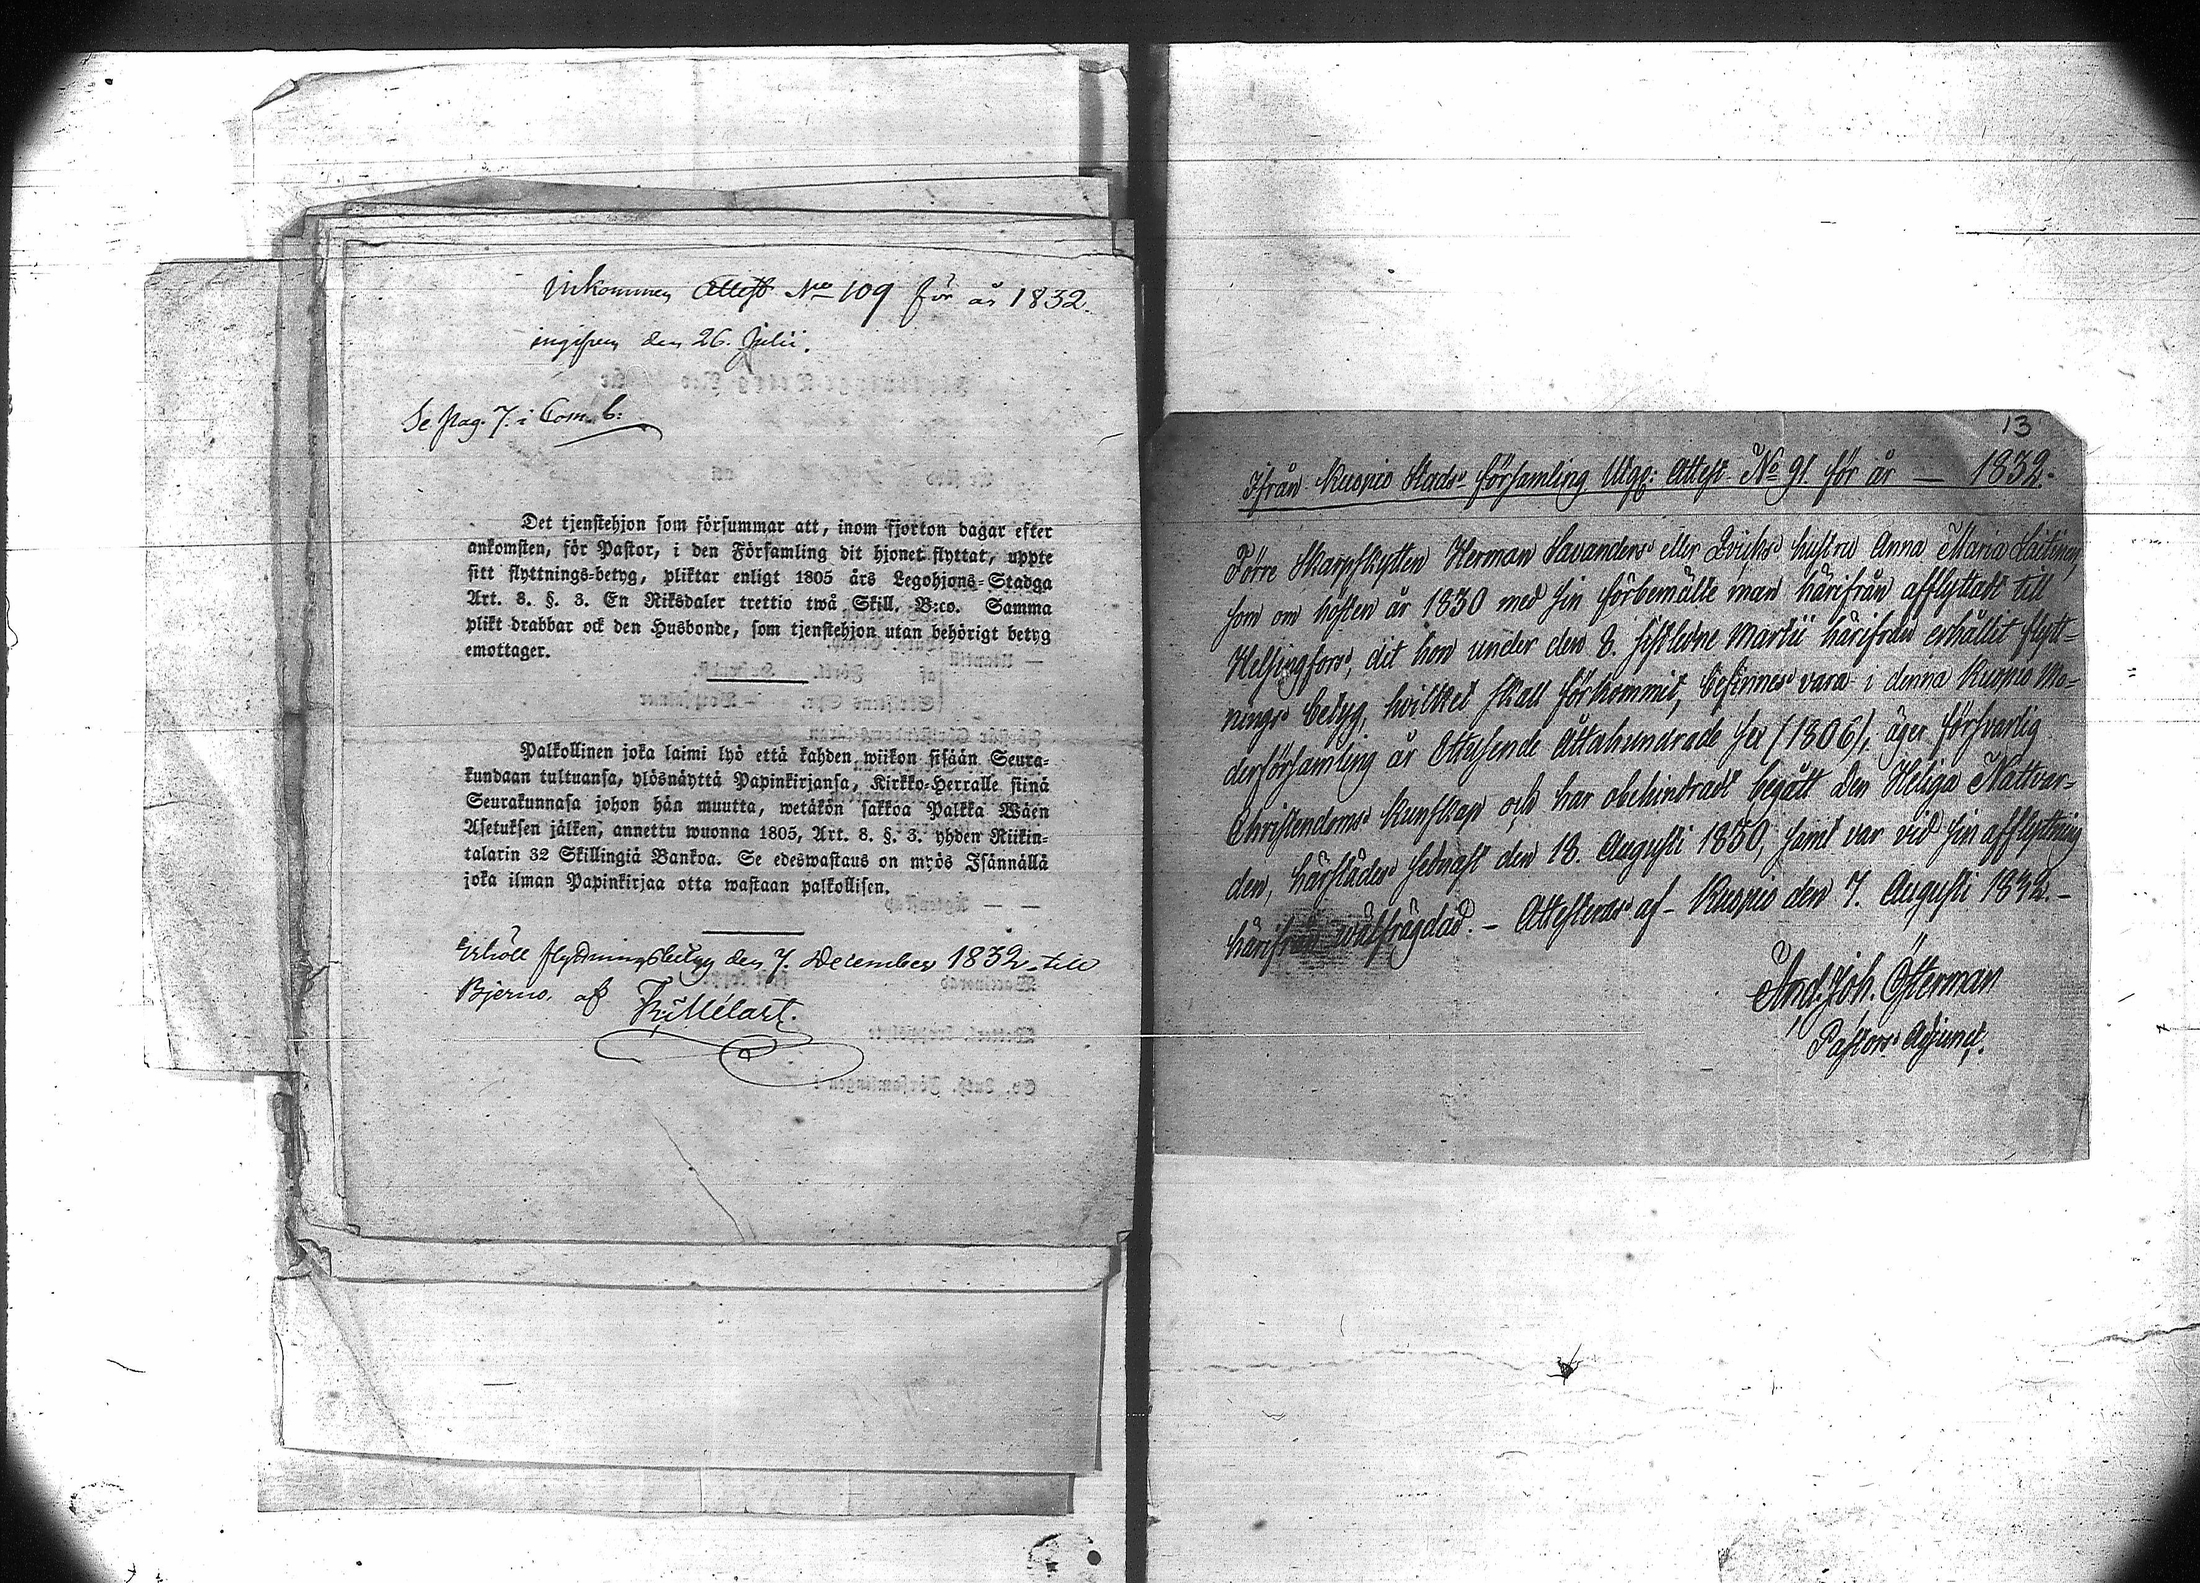 Inkommen Attest No 109 för år 1832.
ingifven den 26. Julii.
Se pag. 7. i Com. b:
Det tjenstehjon som försummar att, inom fjorton dagar efter
ankomsten, för Pastor, i den Församling dit hjonet flyttat, uppte
sitt flyttnings-betyg, pliktar enligt 1805 års Legohjons-Stadga
Art. 8. §. 3. En Riksdaler trettio twå Skill. B:co. Samma
plikt drabbar ock den Husbonde, som tjenstehjon utan behörigt betyg
emottager.
Palkollinen joka laimi lyö että kahden wiikon sisään Seura-
kundaan tultuansa, ylösnäyttä Papinkirjansa, Kirkko-Herralle siinä
Seurakunnasa johon hän muutta, wetäkön sakkoa Palkka Wäen
Asetuksen jälken, annettu wuonna 1805, Art. 8. §. 3. yhden Riikin-
talarin 32 Skillingiä Bankoa. Se edeswastaus on myös Isännällä
joka ilman Papinkirjaa otta wastaan palkollisen.
Erhöll flyttningsbetyg den 7. December 1832 till
Bjerno. af
13
Ifrån Kuopio Stads-församling Utgg: Attest No 91. för år — 1832.
Förre Skarpskytten Herman Savanders eller hustru Anna Maria Laitinen,
som om hösten år 1830 med sin förbemälte man härifrån afflyttadt till
Helsingfors, dit hon under den 8. sistledne Martii härifrån erhållit flytt-
nings betyg, hvilket skall förkommit, befinnes vara i denna Kuopio Mo-
derförsamling år Ettusende Åttahundrade sex (1806), äger försvarlig
Christendoms kunskap och har obehindradt begått Den Heliga Nattvar-
den, härstädes sednast den 18. Augusti 1830, samt var vid sin afflyttning
härifrån wälfrägdad. – Attesteras af – Kuopio den 7. Augusti 1832. –
And. Joh. Österman
Pastors Adjunct.